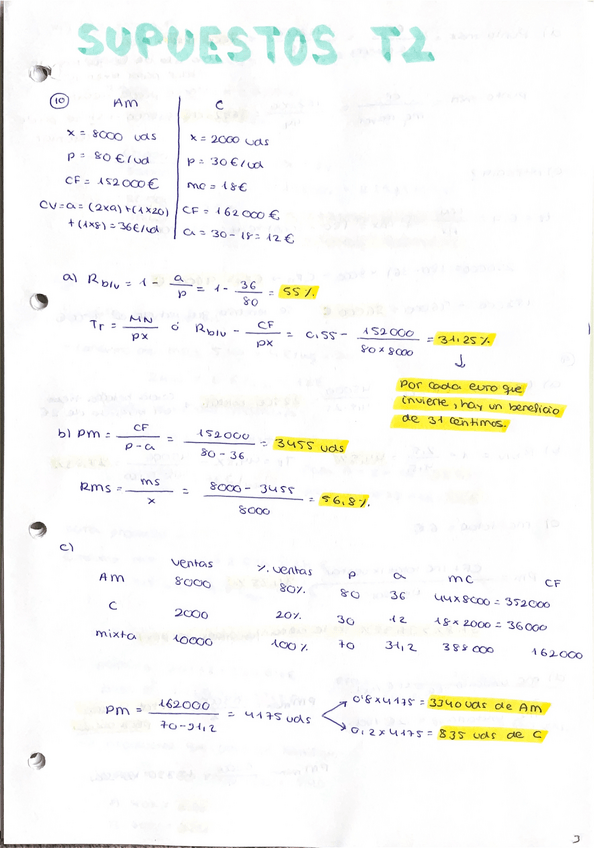 SUPUESTOS T2
10
AM C
x = 8000 uds x = 2000 uds
p = 80 €/ud p = 30 €/ud
CF = 152000 € mc = 18 €
CV = a = (2x9) + (1x20) CF = 162000 €
+ (1x8) = 36€/ud a = 30 - 18 = 12 €
a) Rb/v = 1 - a/p = 1 - 36/80 = 55 %
Tr = MN/px ó Rb/v - CF/px = 0,55 - 152000/80 x 8000 = 31,25 %
↓
Por cada euro que
invierte, hay un beneficio
de 31 céntimos.
b) PM = CF/p-a = 152000/80-36 = 3455 uds
RMS = MS/x = 8000 - 3455/8000 = 56,8 %
c)
ventas % ventas p a mc CF
AM 8000 80% 80 36 44x8000 = 352000
C 2000 20% 30 12 18 x 2000 = 36000
mixta 10000 100 % 70 31,2 388 000 162 000
PM = 162000/70-31,2 = 4175 uds → 0'8 x 4175 = 3340 uds de AM
→ 0,2 x 4175 = 835 uds de C